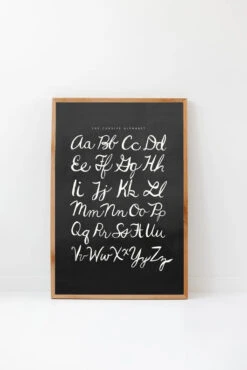 THE CURSIVE ALPHABET
Aa Bb Cc Dd
Ee Ff Gg Hh
Ii Jj Kk Ll
Mm Nn Oo Pp
Qq Rr Ss Tt Uu
Vv Ww Xx Yy Zz